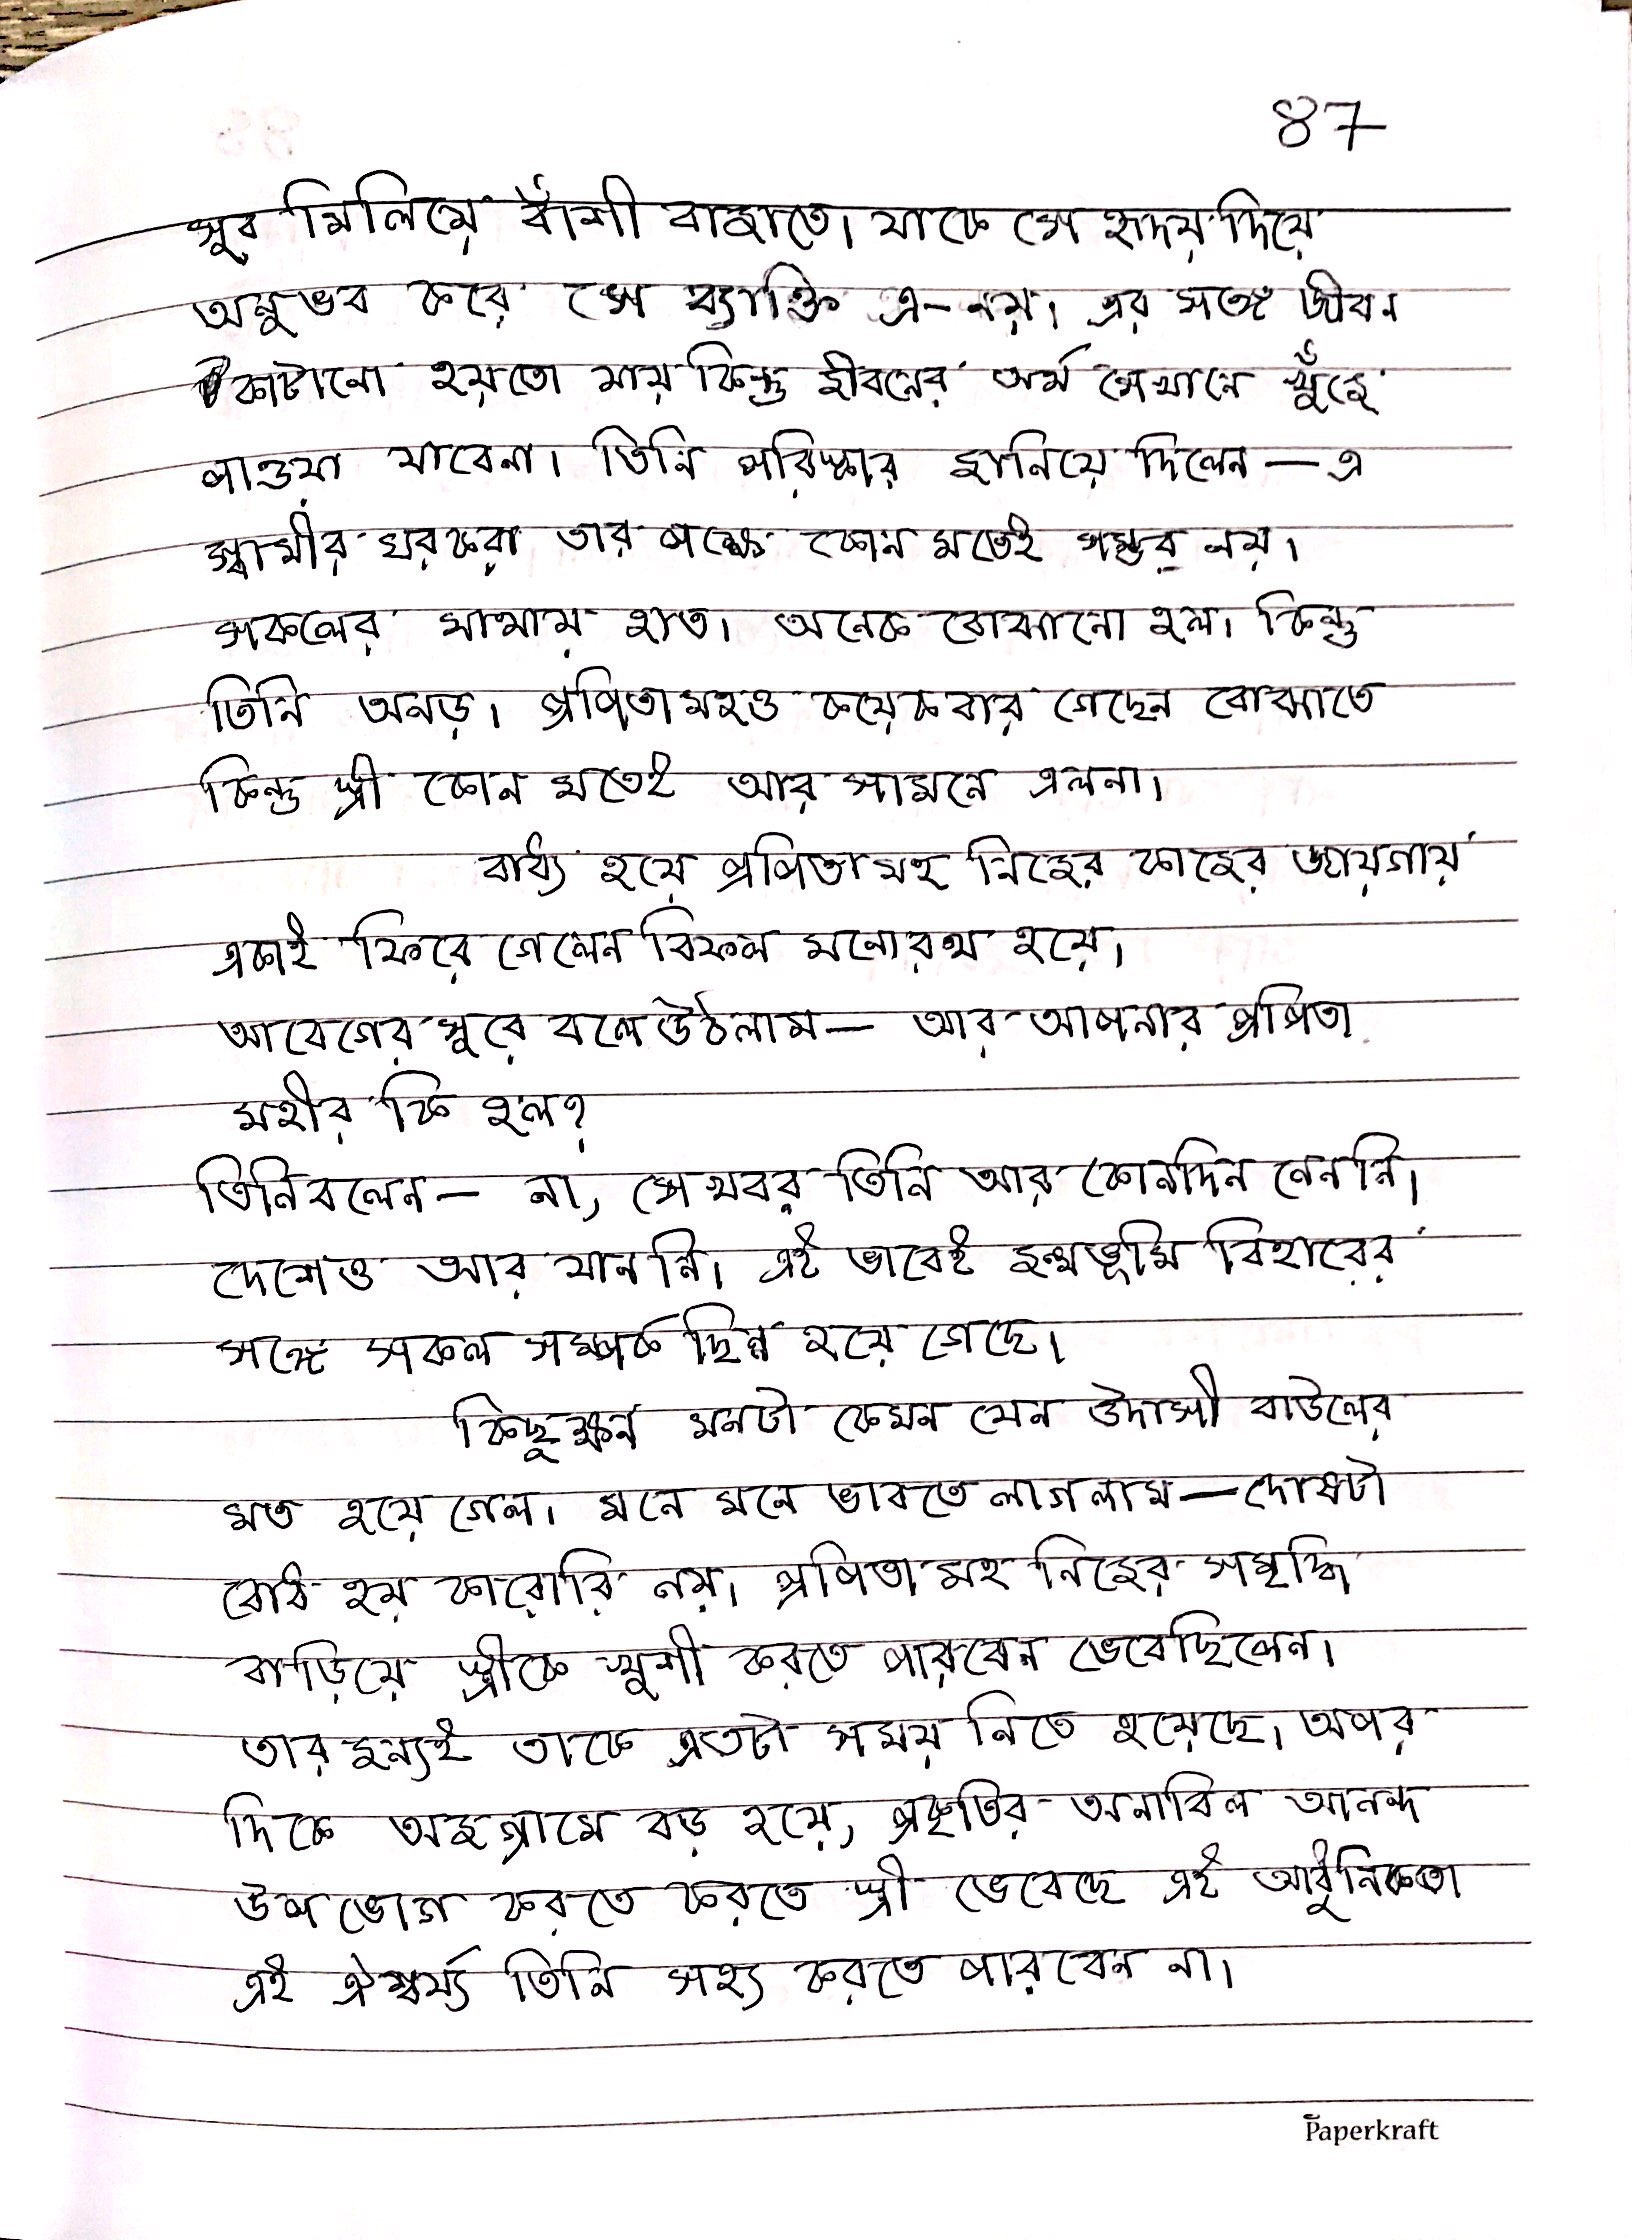 87
সুর মিলিয়ে বাঁশী বাজাতো। যাকে সে হৃদয় দিয়ে
অনুভব করে সে ব্যাক্তি এ-নয়। এর সঙ্গে জীবন
কাটানো হয়তো যায় কিন্তু জীবনের অর্থ সেখানে খুঁজে
পাওয়া যাবেনা। তিনি পরিষ্কার জানিয়ে দিলেন — এ
স্বামীর ঘরকরা তার পক্ষে কোন মতেই সম্ভব নয়।
সকলের মাথায় হাত। অনেক বোঝানো হল। কিন্তু
তিনি অনড়। প্রপিতামহও কয়েকবার গেছেন বোঝাতে
কিন্তু স্ত্রী কোন মতেই আর সামনে এলনা।
বাধ্য হয়ে প্রপিতামহ নিজের কাজের জায়গায়
একাই ফিরে গেলেন বিফল মনোরথ হয়ে।
আবেগের সুরে বলে উঠলাম — আর আপনার প্রপিতা
মহীর কি হল?
তিনি বলেন — না, সে খবর তিনি আর কোনদিন নেননি।
দেশেও আর যাননি। এই ভাবেই জন্মভূমি বিহারের
সঙ্গে সকল সম্পর্ক ছিন্ন হয়ে গেছে।
কিছুক্ষন মনটা কেমন যেন উদাসী বাউলের
মত হয়ে গেল। মনে মনে ভাবতে লাগলাম — দোষটা
বোধ হয় কারোরি নয়। প্রপিতামহ নিজের সমৃদ্ধি
বাড়িয়ে স্ত্রীকে খুশী করতে পারবেন ভেবেছিলেন।
তার জন্যই তাকে এতটা সময় নিতে হয়েছে। অপর
দিকে অজগ্রামে বড় হয়ে, প্রকৃতির অনাবিল আনন্দ
উপভোগ করতে করতে স্ত্রী ভেবেছে এই আধুনিকতা
এই ঐশ্বর্য্য তিনি সহ্য করতে পারবেন না।
Paperkraft